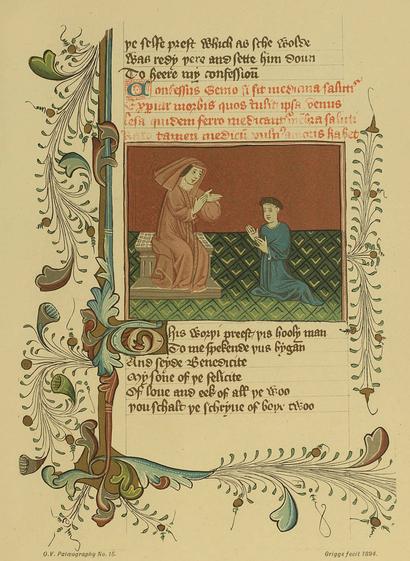 ye selfe prest which as sche wolde
Was redy yere and sette him doun
To heere my confessioun
Confessus Genio si sit medicina salutis
Expiar morbis quos tulit ipsa venus
lesa quidem ferro medicantur membra saluti
Raro tamen medicum vulnus amoris habet
This woryi preest yis hooly man
To me spekende yus bygan
And seyde Benedicite
My sone of ye felicite
Of loue and eek of all ye woo
you schalt ye schryue of boye twoo
G.V. Palæography No. 15.
Griggs fecit 1894.